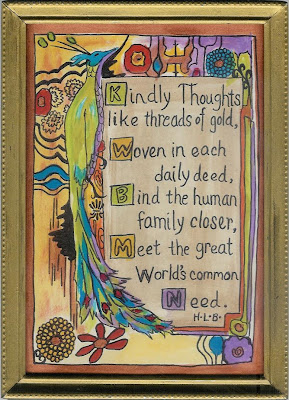 Kindly Thoughts
like threads of gold,
Woven in each
daily deed,
Bind the human
family closer,
Meet the great
World's common
Need.
H·L·B·